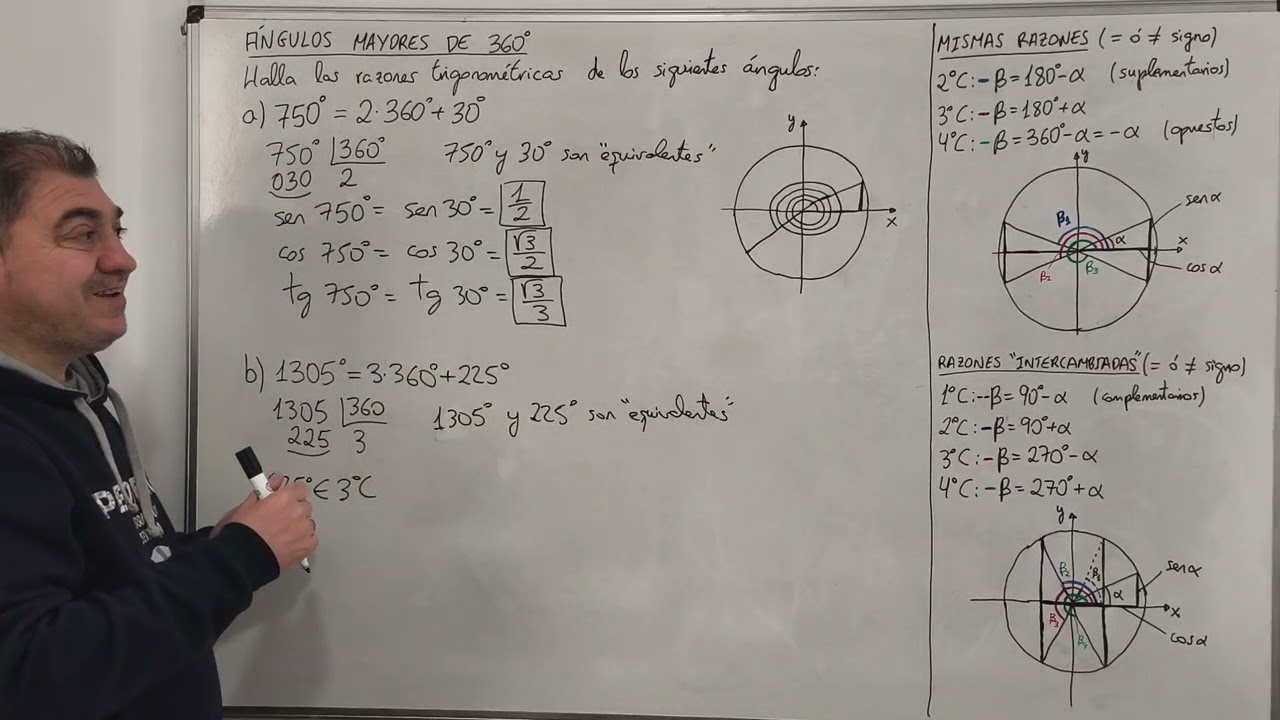 ÁNGULOS MAYORES DE 360°
Halla las razones trigonométricas de los siguientes ángulos:
a) 750° = 2·360° + 30°
750° |360°
030 2
750° y 30° son "equivalentes"
sen 750° = sen 30° = 1/2
cos 750° = cos 30° = √3/2
tg 750° = tg 30° = √3/3
y
x
b) 1305° = 3·360° + 225°
1305 |360
225 3
1305° y 225° son "equivalentes"
5° ∈ 3°C
MISMAS RAZONES (= ó ≠ signo)
2°C: - β = 180° - α (suplementarios)
3°C: - β = 180° + α
4°C: - β = 360° - α = -α (opuestos)
y
sen α
β1
α
x
β2
β3
cos α
RAZONES "INTERCAMBIADAS" (= ó ≠ signo)
1°C: -- β = 90° - α (complementarios)
2°C: - β = 90° + α
3°C: - β = 270° - α
4°C: - β = 270° + α
y
β2
β1
sen α
α
x
β3
β4
cos α